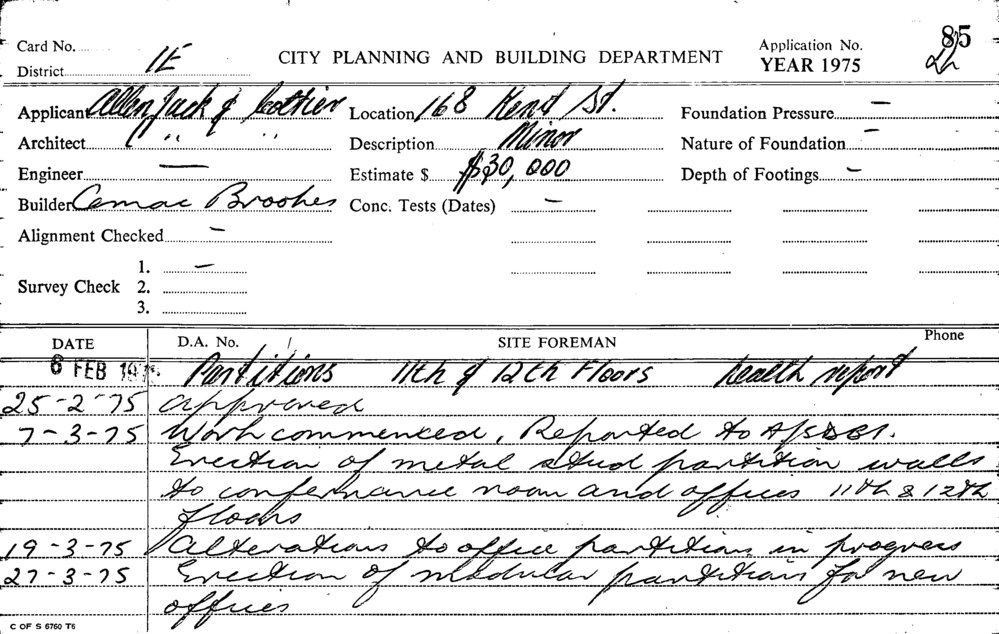 Card No. 85
CITY PLANNING AND BUILDING DEPARTMENT Application No.
District 1E YEAR 1975
Applicant Allan Jack & Cottier Location 168 Kent St. Foundation Pressure —
Architect " " Description Minor Nature of Foundation —
Engineer — Estimate $ $30,000 Depth of Footings —
Builder Cemac Brookes Conc. Tests (Dates) —
Alignment Checked —
1. —
Survey Check 2.
3.
DATE D.A. No. / SITE FOREMAN Phone
6 FEB 197 Partitions 11th & 12th Floors health report
25-2-75 approved
7-3-75 Work commenced, Reported to
Erection of metal stud partition walls
to conference room and offices 11th & 12th
floors
19-3-75 Alterations to office partitions in progress
27-3-75 Erection of modular partitions for new
offices
C OF S 6760 T6